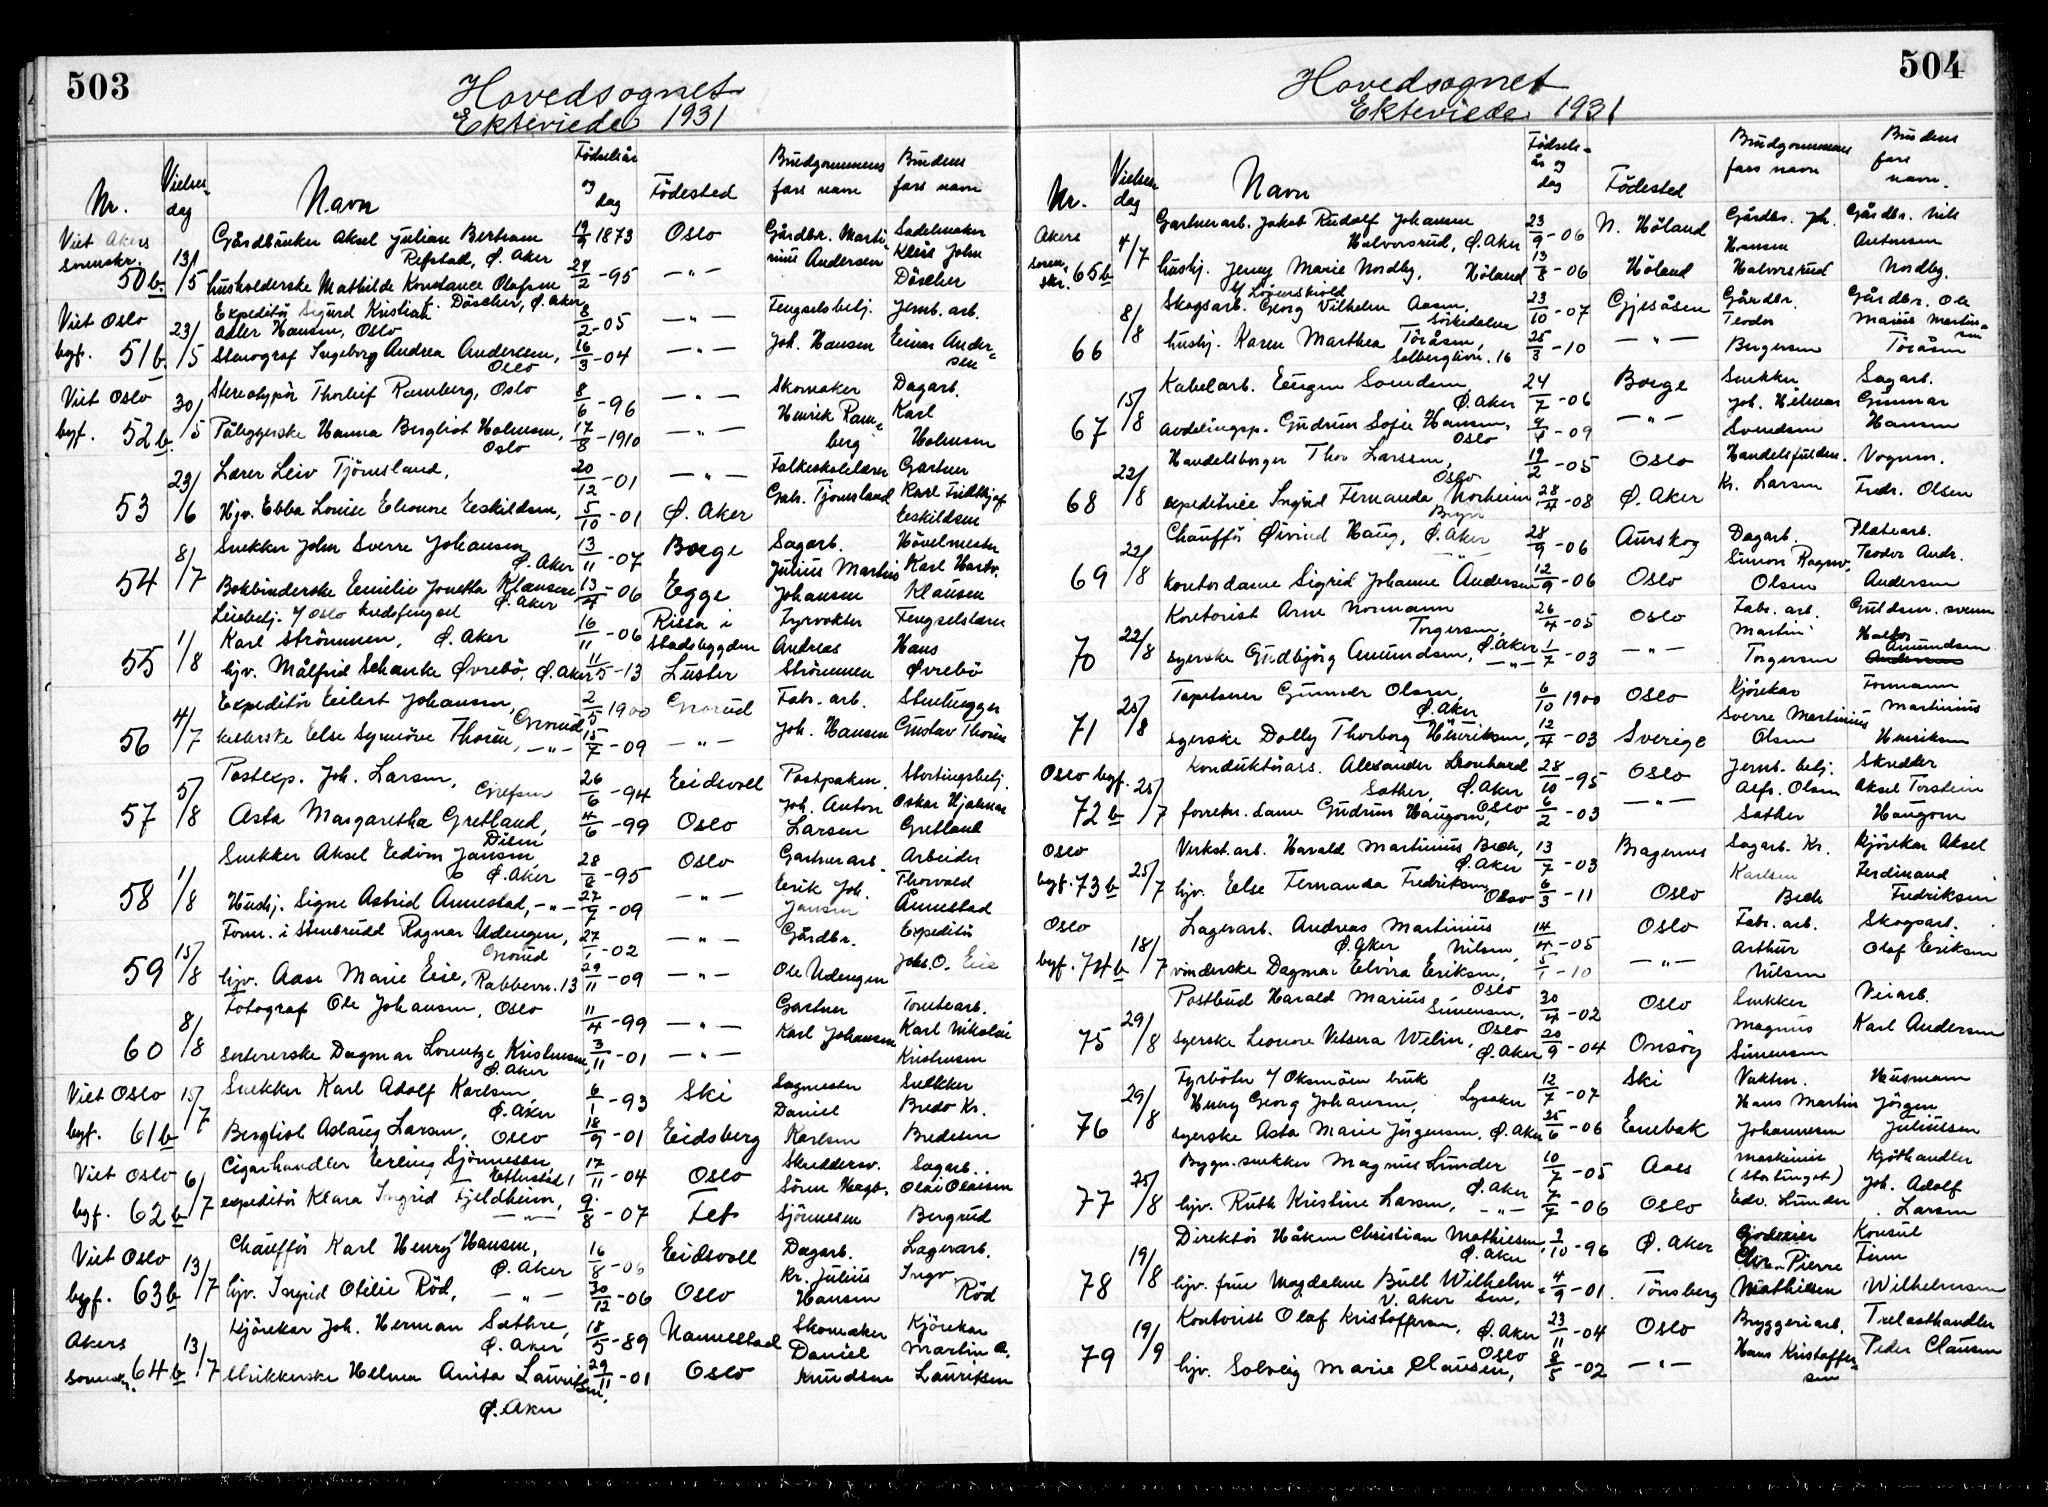 503
Hovedsognet
Ekteviede 1931
Nr.
Vielses-
dag
Navn
Fødselsår
og
dag
Födested
Brudgommens
fars navn
Brudens
fars navn
Viet Akers
sorenskr.
50b. 13/5
Gårdbruker Aksel Julian Bertram
Refstad, Ø. Aker 19/9 1873 Oslo Gårdbr. Marti-
nius Andersen Sadelmaker
John
Döscher
husholderske Mathilde Konstance Olafsen
Döscher, Ø. Aker 24/2-95 -"-
Viet Oslo
byf. 51b. 23/5
Expeditör Sigurd Kristian
Adler Hansen, Oslo 8/2-05 -"- Fengselsbetj.
Joh. Hansen Jernb. arb.
Einar Ander-
sen
Stenograf Ingeborg Andrea Andersen,
Oslo 16/3-04 -"-
Viet Oslo
byf. 52b 30/5
Stereotypör Thorleif Ramberg, Oslo 8/6-96 -"- Skomaker
Henrik Ram-
berg Dagarb.
Karl
Holmsen
Påleggerske Hanna Bergliot Holmsen,
Oslo 17/8-1910 -"-
53 23/6
Lærer Leiv Tjömsland, 20/12-01 -"- Folkeskolelærer
Gab. Tjomsland Gartner
Karl Fridthjof
Eskildsen
Hjv. Ebba Louise Eleonore Eskildsen, 5/10-01 Ø. Aker
54 8/7
Snekker John Sverre Johansen,
Ø. Aker 13/11-07 Borge Sagarb.
Julius Martin
Johansen Hövelmester
Karl Hartv.
Klausen
Bokbinderske Emilie Jonetta Klausen
Ø. Aker 13/4-06 Egge
55 1/8
Luebetj. v/ Oslo kredsfengsel
Karl Strömmen, Ø. Aker 16/11-06 Rissa i
Stadsbygden Fyrvokter
Andreas
Strömmen Fengselslærer
Hans
Øvrebö
hjv. Målfrid Schanke Øvrebö, Ø. Aker 11/5-13 Luster
56 4/7
Expeditör Eilert Johansen,
Grorud 2/5 1900 Grorud Fab. arb.
Joh. Hansen Stenhugger
Gustav Thorén
Else Synnöve Thorén, -"- 15/7-09 -"-
57 5/8
Postexp. Joh. Larsen,
Grefsen 26/6-94 Eidsvoll Postpakm.
Joh. Anton
Larsen Stortingsbetj.
Oskar Hjalmar
Gretland
Asta Margaretha Gretland,
Disen 4/6-99 Oslo
58 1/8
Snekker Aksel Edvin Jansen,
Ø. Aker 28/6-95 Oslo Gartnerarb.
Erik Joh.
Jansen Arbeider
Thorvald
Ånnestad
Hushj. Signe Astrid Ånnestad, -"- 27/9-09 -"-
59 15/8
Form. i Stenbrudd Ragnar Udengen,
Grorud 27/1-02 -"- Gårdbr.
Ole Udengen Expeditör
Joh. O. Eie
hjv. Aase Marie Eie, Rabbevn. 13 29/11-09 -"-
60 8/8
Fotograf Ole Johansen, Oslo 11/4-99 -"- Gartner
Karl Johansen Tomtearb.
Karl Nikolai
Kristensen
sortererske Dagmar Lorentze Kristensen,
Ø. Aker 3/11-01 -"-
Viet Oslo
byf. 61b 15/7
Snekker Karl Adolf Karlsen,
Ø. Aker 6/1-93 Ski Sagmester
Daniel
Karlsen Snekker
Bredo Kr.
Bredesen
Bergliot Aslaug Larsen, Oslo 18/9-01 Eidsberg
Viet Oslo
byf. 62b 6/7
Cigarhandler Erling Sjönnesen,
Etterstad 1 17/11-04 Oslo Skreddersv.
Sören Hagb.
Sjönnesen Sagarb.
Olai Olaisen
Bergrud
expeditör Klara Ingrid Fjeldheim,
-"- 9/8-07 Fet
Viet Oslo
byf. 63b 13/7
Chaufför Karl Henry Hansen,
Ø. Aker 16/8-06 Eidsvoll Dagarb.
Kr. Julius
Hansen Lagerarb.
Ingv.
Röd
hjv. Ingrid Otilie Röd, -"- 30/12-06 Oslo
Akers
sorenskr. 64b 13/7
Kjörekar Joh. Herman Sæthre,
Ø. Aker 18/5-89 Nannestad Skomaker
Daniel
Knudsen Kjörekar
Martin A.
Lauritsen
Strikkerske Helma Anita Laurit-
sen,
Ø. Aker 29/11-01 Oslo
504
Hovedsognet
Ekteviede 1931
Nr.
Vielses-
dag
Navn
Födsels-
år og
dag
Födested
Brudgommens
fars navn
Brudens
fars
navn.
Akers
soren-
skr. 65b 4/7
Gartnerarb. Jakob Rudolf Johannes
Halvorsrud, Ø. Aker 23/9-06 N. Höland Gårdbr. Joh.
Hansen
Halvorsrud Gårdbr. Nils
Antonsen
Nordby.
hushj. Jenny Marie Nordby, Höland 13/8-06 Höland
66 8/8
v/ Lövenskiold
Skogsarb. Georg Vilhelm Aasen,
Sörkedalen 23/10-07 Gjesåsen Gårdbr.
Teodor
Bergersen Gårdbr. Ole
Marius Martin-
sen
Töråsen
hushj. Karen Marthea Töråsen,
Solbergliv. 16 25/3-10 -"-
67 15/8
Kabelarb. Eugen Svendsen,
Ø. Aker 24/7-06 Borge Snekker
Joh. Helmer
Svendsen Sagarb.
Gunnar
Hansen
avdelingsp. Gudrun Sofie Hansen,
Oslo 9/4-09 -"-
68 22/8
Handelsborger Thor Larssen,
Oslo 19/2-05 Oslo Handelsfuldm.
Kr. Larsen Vognm.
Fredr. Olsen
expeditrice Ingrid Fernanda Norheim
Bryn 28/4-08 Ø. Aker
69 22/8
Chaufför Øivind Haug, Ø. Aker 28/9-06 Aurskog Dagarb.
Simon Ragnv.
Olsen Platearb.
Teodor Andr.
Andersen
kontordame Sigrid Johanne Andersen 12/9-06 Oslo
70 22/8
Kontorist Arne Normann
Torgersen, Ø. Aker 26/4-05 Oslo Fab. arb.
Martin
Torgersen Guldsm. svenn
Halfdan
Amundsen
syerske Gudbjörg Amundsen, -"- 1/7-03 -"-
71 25/8
Tapetserer Gunnar Olsen,
Ø. Aker 6/10 1900 Oslo Kjörekar
Sverre Martinius
Olsen Formann
Martinius
Henriksen
syerske Dolly Thorborg Henriksen, -"- 12/4-03 Sverige
Oslo byf.
72b 25/7
Konduktörass. Alexander Leonhard
Sather, Ø. Aker 28/10-95 Oslo Jernb. betj.
Alfr. Olsen
Sather Skredder
Aksel Torstein
Haugom
forretn. dame Gudrun Haugom, Oslo 6/2-03 -"-
Oslo
byf. 73b 25/7
Verkst. arb. Harald Martinius Bech,
Ø. Aker 13/7-03 Bragernes Sagarb. Kr.
Karlsen
Bech Kjörekar Aksel
Ferdinand
Fredriksen
hjv. Else Fernanda Fredriksen,
Oslo 6/3-11 Oslo
Oslo
byf. 74b 18/7
Lagerarb. Andreas Martinius
Ø. Aker Nilsen, 14/4-05 Oslo Fab. arb.
Arthur
Nilsen Skogsarb.
Olaf Eriksen
vinderske Dagmar Elvira Eriksen,
Oslo 5/1-10 -"-
75 29/8
Postbud Harald Marius
Simensen,
Oslo 30/4-02 Oslo Snekker
Magnus
Simensen Veiarb.
Karl Andersen
syerske Leonore Vetsera Welin,
Ø. Aker 20/9-04 Onsöy
76 29/8
Fyrböter v/ Oksenöen bruk
Henry Georg Johansen, Lysaker 12/7-07 Ski Vaktm.
Hans Martin
Johannesen Husmann
Jörgen
Juliussen
syerske Asta Marie Jörgensen, Ø. Aker 25/6-06 Enebak
77 25/8
Bygn. snekker Magnus Lunder
Ø. Aker 10/7-05 Aas Maskinist
(Stortinget)
Edv. Lunder Kjöthandler
Joh. Adolf
Larsen
hjv. Ruth Kristine Larsen, -"- 7/7-06 Oslo
78 19/8
Direktör Håkon Christian Mathiesen,
Ø. Aker 3/10-96 Ø. Aker Godseier
Chr. Pierre
Mathiesen Konsul
Finn
Wilhelmsen
hjv. frue Magdalene Bull Wilhelm-
sen,
V. Aker 4/9-01. Tönsberg
79 19/9
Kontorist Olaf Kristoffersen,
Ø. Aker 23/11-04 Oslo Bryggeriarb.
Hans Kristoffer-
sen Trelasthandler
Peder Clausen
hjv. Solveig Marie Clausen,
Oslo 8/5-02 -"-